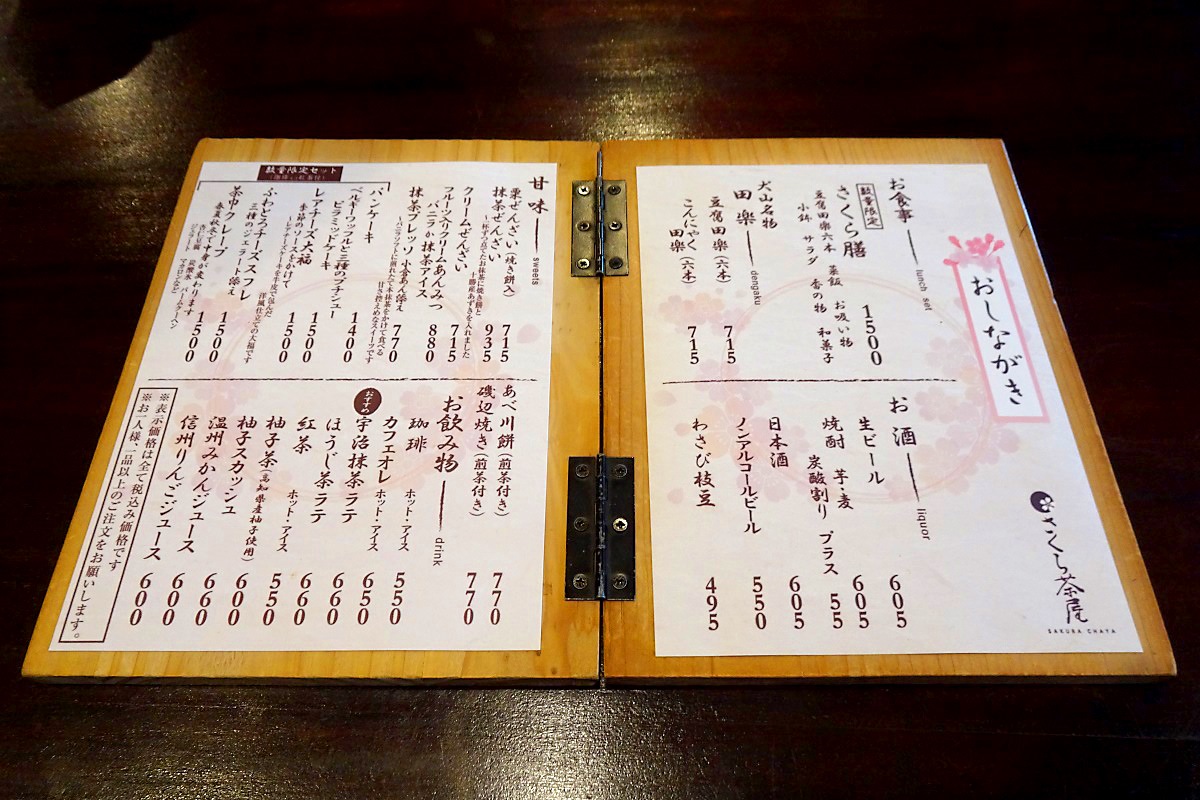 おしながき
さくら茶屋
SAKURA CHAYA
お食事 lunch set
数量限定
さくら膳 1500
豆腐田楽六本 菜飯 お吸い物
小鉢 サラダ 香の物 和菓子
犬山名物
田楽 dengaku
豆腐田楽(六本) 715
こんにゃく田楽(六本) 715
お酒 liquor
生ビール 605
焼酎 芋・麦 605
炭酸割り プラス 55
日本酒 605
ノンアルコールビール 550
わさび枝豆 495
甘味 sweets
栗ぜんざい(焼き餅入) 715
抹茶ぜんざい 935
~一杯ずつ点てたお抹茶に焼き餅と
十勝産あずきを入れました
クリームぜんざい 715
フルーツ入りクリームあんみつ 880
バニラか抹茶アイス
抹茶ブレッソ 小倉あん添え 770
~バニラソフトに溶れたて本抹茶をかけて食べる
甘さ控えめなスイーツです
数量限定セット
パンケーキ 1400
ベルギーワッフルと三種のプチシュー 1500
ピラミッドケーキ
季節のソースをかけて
レアチーズ大福 1500
~レアチーズケーキを牛皮で包んだ
洋風仕立ての大福です
ふわとろチーズスフレ 1500
三種のジェラート添え
茶巾クレープ 1500
春夏秋冬で中身が変わります
あべ川餅(煎茶付き) 770
磯辺焼き(煎茶付き) 770
お飲み物 drink
珈琲 ホット・アイス 550
カフェオレ ホット・アイス 650
おすすめ
宇治抹茶ラテ 660
ほうじ茶ラテ 660
紅茶 ホット・アイス 550
柚子茶(高知県産柚子使用) 600
柚子スカッシュ 660
温州みかんジュース 600
信州りんごジュース 600
※表示価格は全て税込み価格です
※お一人様、一品以上のご注文をお願いします。